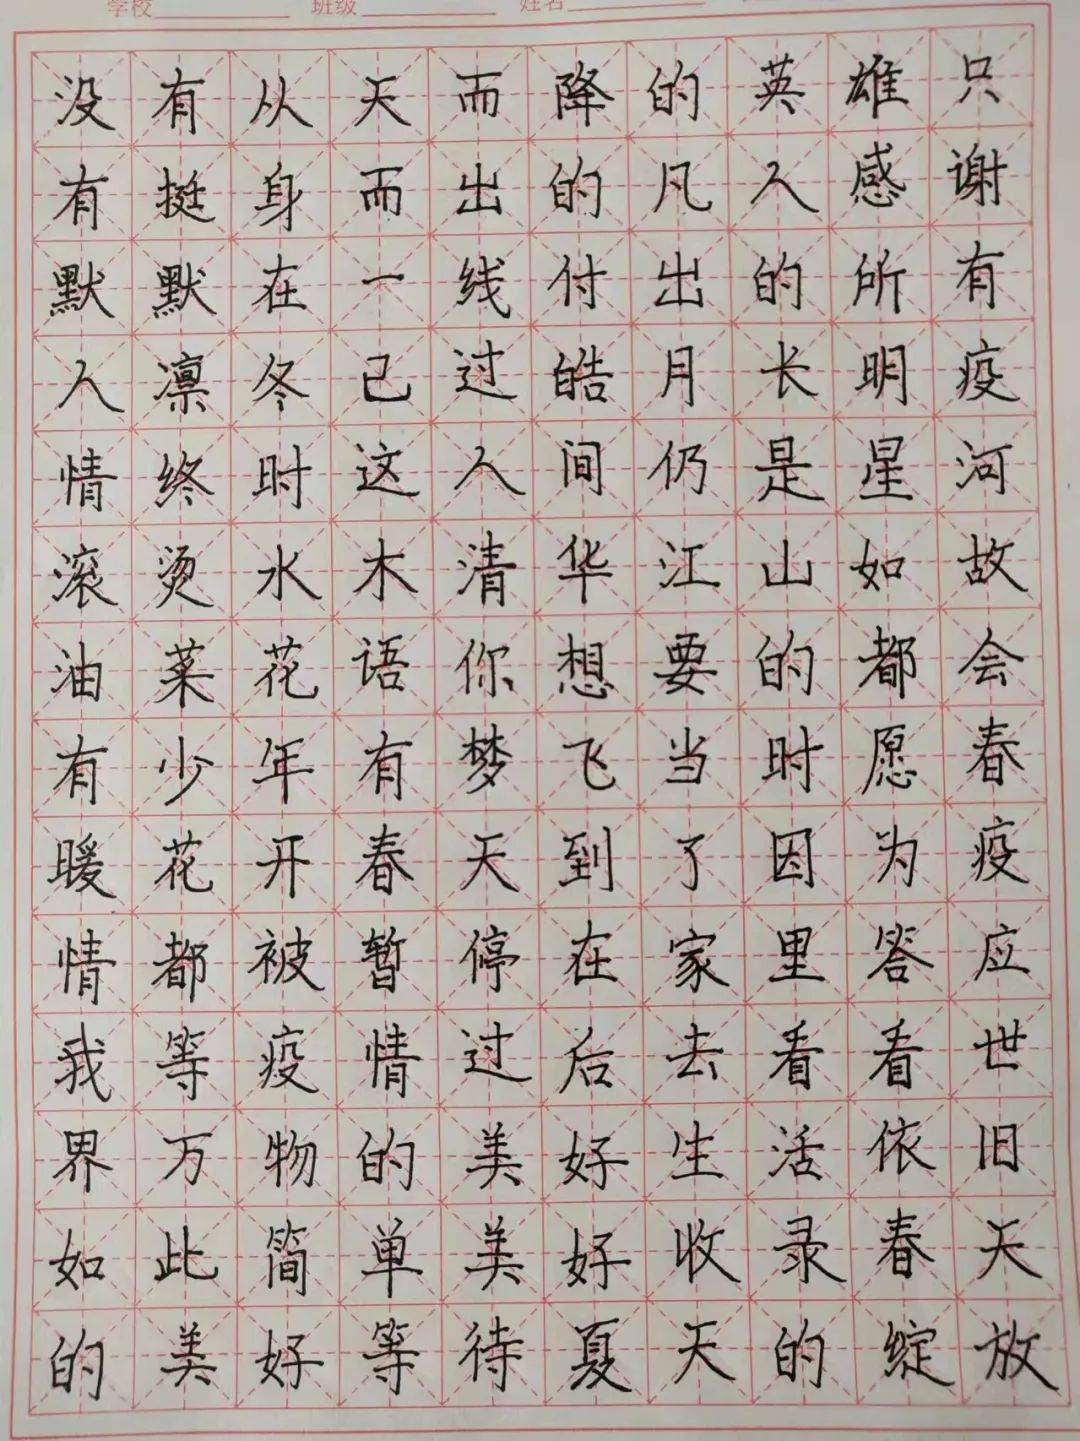 学校 班级 姓名
没有从天而降的英雄只
有挺身而出的凡人感谢
默默在一线付出的所有
人凛冬已过皓月长明疫
情终时这人间仍是星河
滚烫水木清华江山如故
油菜花语你想要的都会
有少年有梦飞当时愿春
暖花开春天到了因为疫
情都被暂停在家里答应
我等疫情过后去看看世
界万物的美好生活依旧
如此简单美好收录春天
的美好等待夏天的绽放